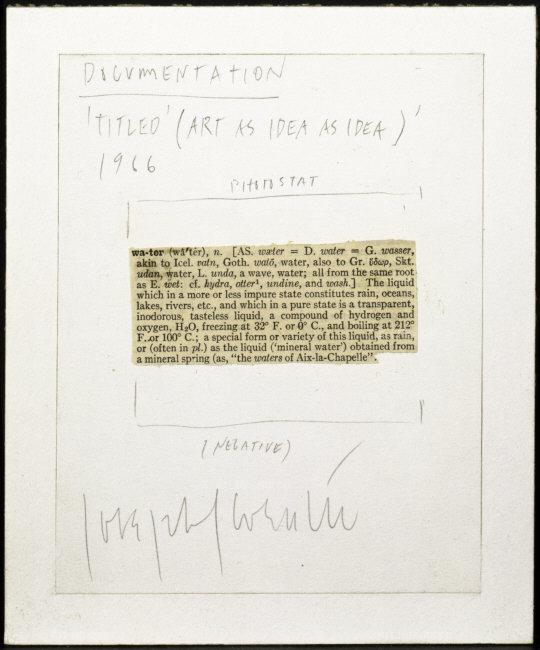 DOCUMENTATION
'TITLED' (ART AS IDEA AS IDEA)'
1966
PHOTOSTAT
wa-ter (wâ′tėr), n. [AS. wæter = D. water = G. wasser,
akin to Icel. vatn, Goth. watō, water, also to Gr. ὕδωρ, Skt.
udan, water, L. unda, a wave, water; all from the same root
as E. wet: cf. hydra, otter¹, undine, and wash.] The liquid
which in a more or less impure state constitutes rain, oceans,
lakes, rivers, etc., and which in a pure state is a transparent,
inodorous, tasteless liquid, a compound of hydrogen and
oxygen, H₂O, freezing at 32° F. or 0° C., and boiling at 212°
F. or 100° C.; a special form or variety of this liquid, as rain,
or (often in pl.) as the liquid ('mineral water') obtained from
a mineral spring (as, "the waters of Aix-la-Chapelle".
(NEGATIVE)
Joseph Kosuth